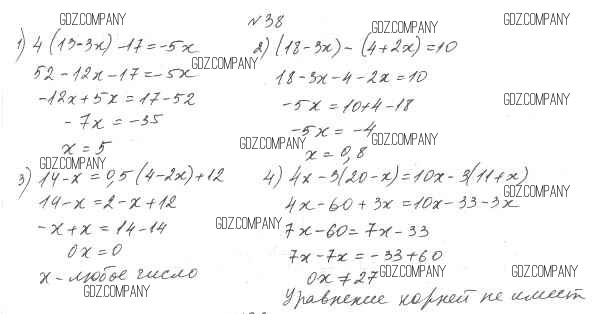 GDZ.COMPANY
№ 38
GDZ.COMPANY
GDZ.COMPANY
1) 4 (13-3x) -17 = -5x
52 - 12x - 17 = -5x
GDZ.COMPANY
-12x + 5x = 17 - 52
-7x = -35
x = 5
2) (18-3x) - (4+2x) = 10
18 - 3x - 4 - 2x = 10
GDZ.COMPANY
-5x = 10 + 4 - 18
-5x = -4
GDZ.COMPANY
GDZ.COMPANY
x = 0,8
GDZ.COMPANY
3) 14 - x = 0,5 (4-2x) + 12
14 - x = 2 - x + 12
-x + x = 14 - 14
GDZ.COMPANY
0x = 0
x - любое число
GDZ.COMPANY
4) 4x - 3(20-x) = 10x - 3(11+x)
GDZ.COMPANY
4x - 60 + 3x = 10x - 33 - 3x
7x - 60 = 7x - 33
7x - 7x = -33 + 60
0x ≠ 27
GDZ.COMPANY
GDZ.COMPANY
Уравнение корней не имеет